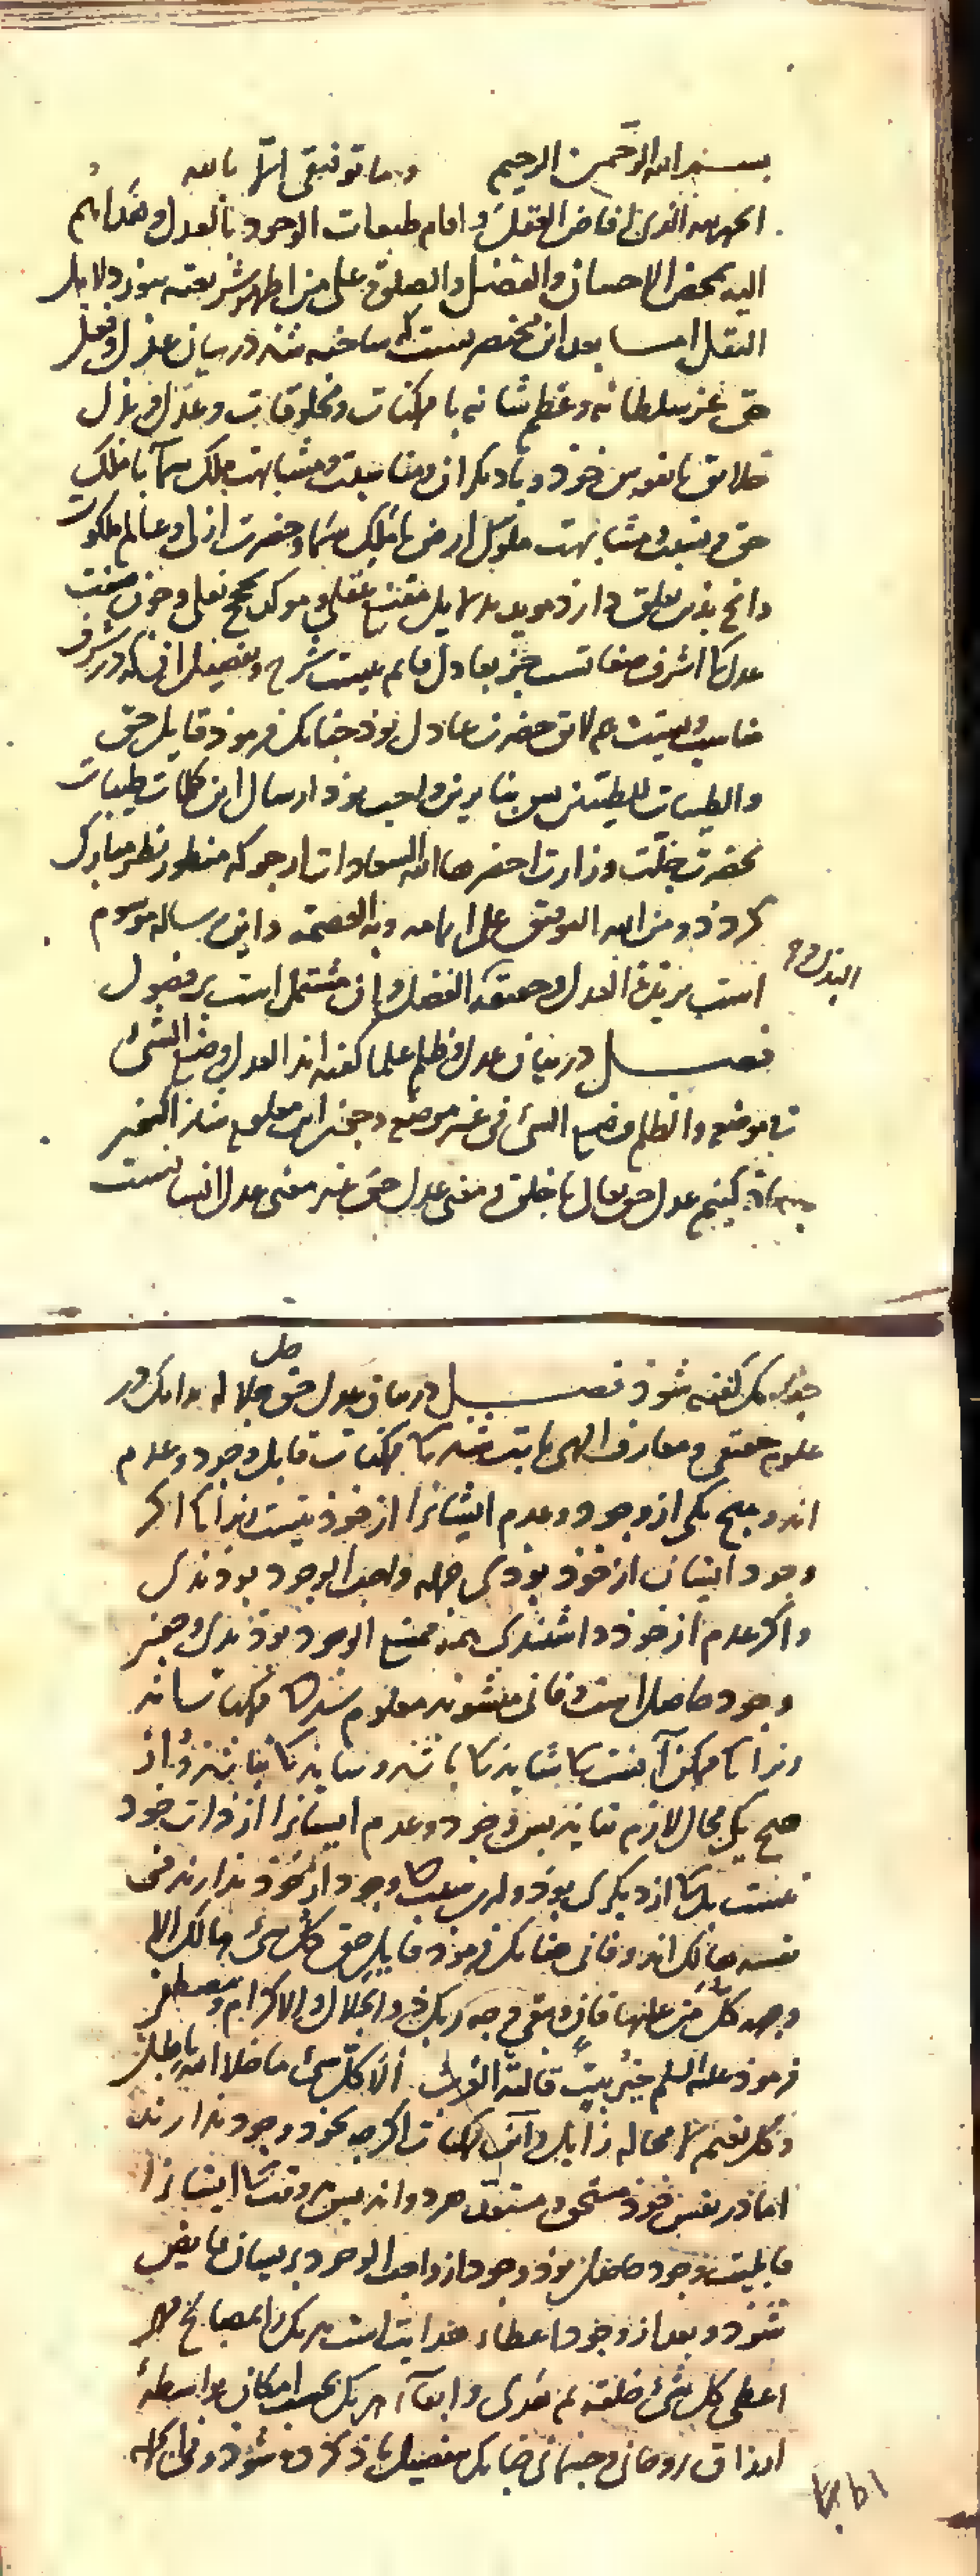 بسم الله الرحمن الرحیم وما توفیقی الا بالله
الحمد لله الذی افاض العقل و اقام طبقات الوجود بالعدل و هداهم
الیه بمحض الاحسان والفضل والصلوة علی من اظهر شریعته بنور دلایل
النقل اما بعد این مختصریست که ساخته شد در بیان عدل و فضل
حق عز سلطانه و عظم شانه با ممکنات و مخلوقات و عدل و بذل
خلایق با نفوس خود و با دیکران و مناسبت و مشابهت ملک سما با ملک
حق و نسبت و مشابهت ملوک ارض با ملک سما و حضرت ازلی و عالم ملکوت
وانچ بذین تعلق دارد موید بدلایل مقنع عقلی و موکد بحجج نقلی و چون صفت
عدل کی اشرف صفاتست جز بعادل قایم نیست شرح و تفصیل ان که در شرف
مناسب نیست هم لایق حضرت عادل بوذ چنانک فرموذ قایل حق
والطیبات للطیبین پس بنابرین واجب بوذ ارسال این کلمات طیبات
بحضرت جلت وزارت احضرها الله السعادات ارجو که منظور نظر مبارک
کردذ و من الله التوفیق علی اتمامه و به العصمة و این رساله موسوم
است بزبدة العدل و حقیقة الفضل و ان مشتمل است بر فصول
فصل در بیان عدل و ظلم علما کفته اند العدل وضع الشیء
فی موضعه والظلم وضع الشیء فی غیر موضعه و چون این معلوم شذ اکنون
کنیم عدل حق تعالی با خلق و معنی عدل حق غیر معنی عدل انسانست
چنانک کفته شوذ فصل در بیان عدل حق جل جلاله بدانک در
علوم حقیقی و معارف الهی ثابت شد کی ممکنات قابل وجود و عدم
اند و هیچ یکی از وجود و عدم ایشانرا از خوذ نیست زیرا کی اکر
وجود ایشان از خوذ بوذی جمله واجب الوجود بوذندی
و اکر عدم از خوذ داشتندی همه ممتنع الوجود بوذندی و چون
وجود حاصل است و فانی میشوند معلوم شد کی ممکنات اند
زیرا کی ممکن آنست کی شاید کی باشد و شاید کی نباشد و از
هیچ یکی محال لازم نیاید پس وجود و عدم ایشانرا از ذات خود
نیست بلک از دیکری بوذ و این سبب کی وجود از خوذ ندارند فی
نفسه هالک اند و فانی چنانک فرموذ قایل حق کل شیء هالک الا
وجهه کل من علیها فان و یبقی وجه ربک ذو الجلال والاکرام و مصطفی
فرموذ علیه السلم خیر بیت قالته العرب الا کل شیء ما خلا الله باطل
و کل نعیم لا محالة زایل و این ممکنات اکر چه بخود وجود ندارند
اما در نفس خوذ مستحق و مستعد هر دو اند پس هر وقت کی ایشانرا
قابلیت وجود حاصل بوذ وجود از واجب الوجود بریشان فایض
شوذ و بعد از وجود اعطاء هدایت است هر یک را بمصالح
اعطی کل شیء خلقه ثم هدی و ابقاء هر یک بحسب امکان بواسطهٔ
ارزاق روحانی و جسمانی چنانک بتفصیل یاذ کرده شوذ